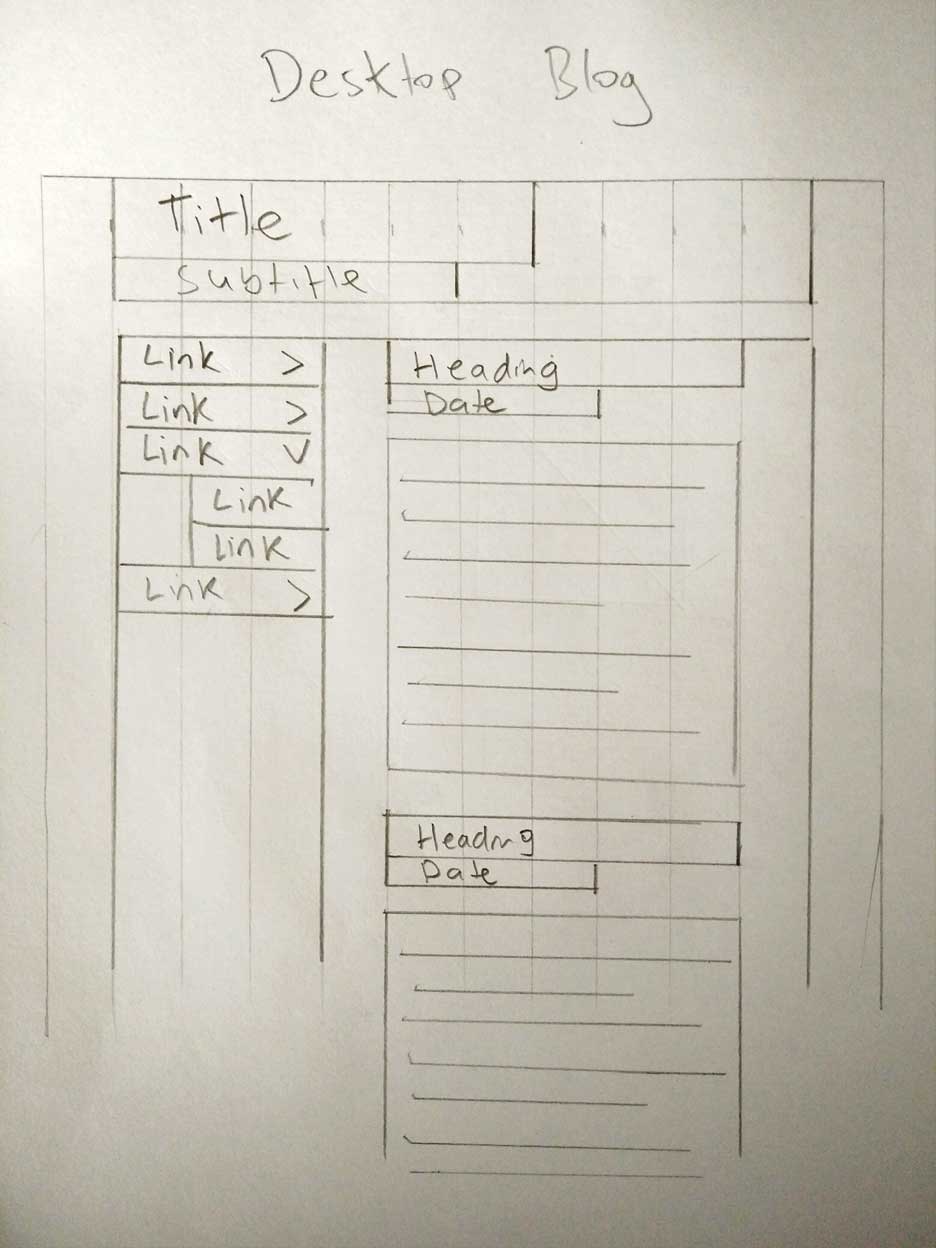 Desktop Blog
Title
Subtitle
Link >
Link >
Link V
Link
Link
Link >
Heading
Date
Heading
Date